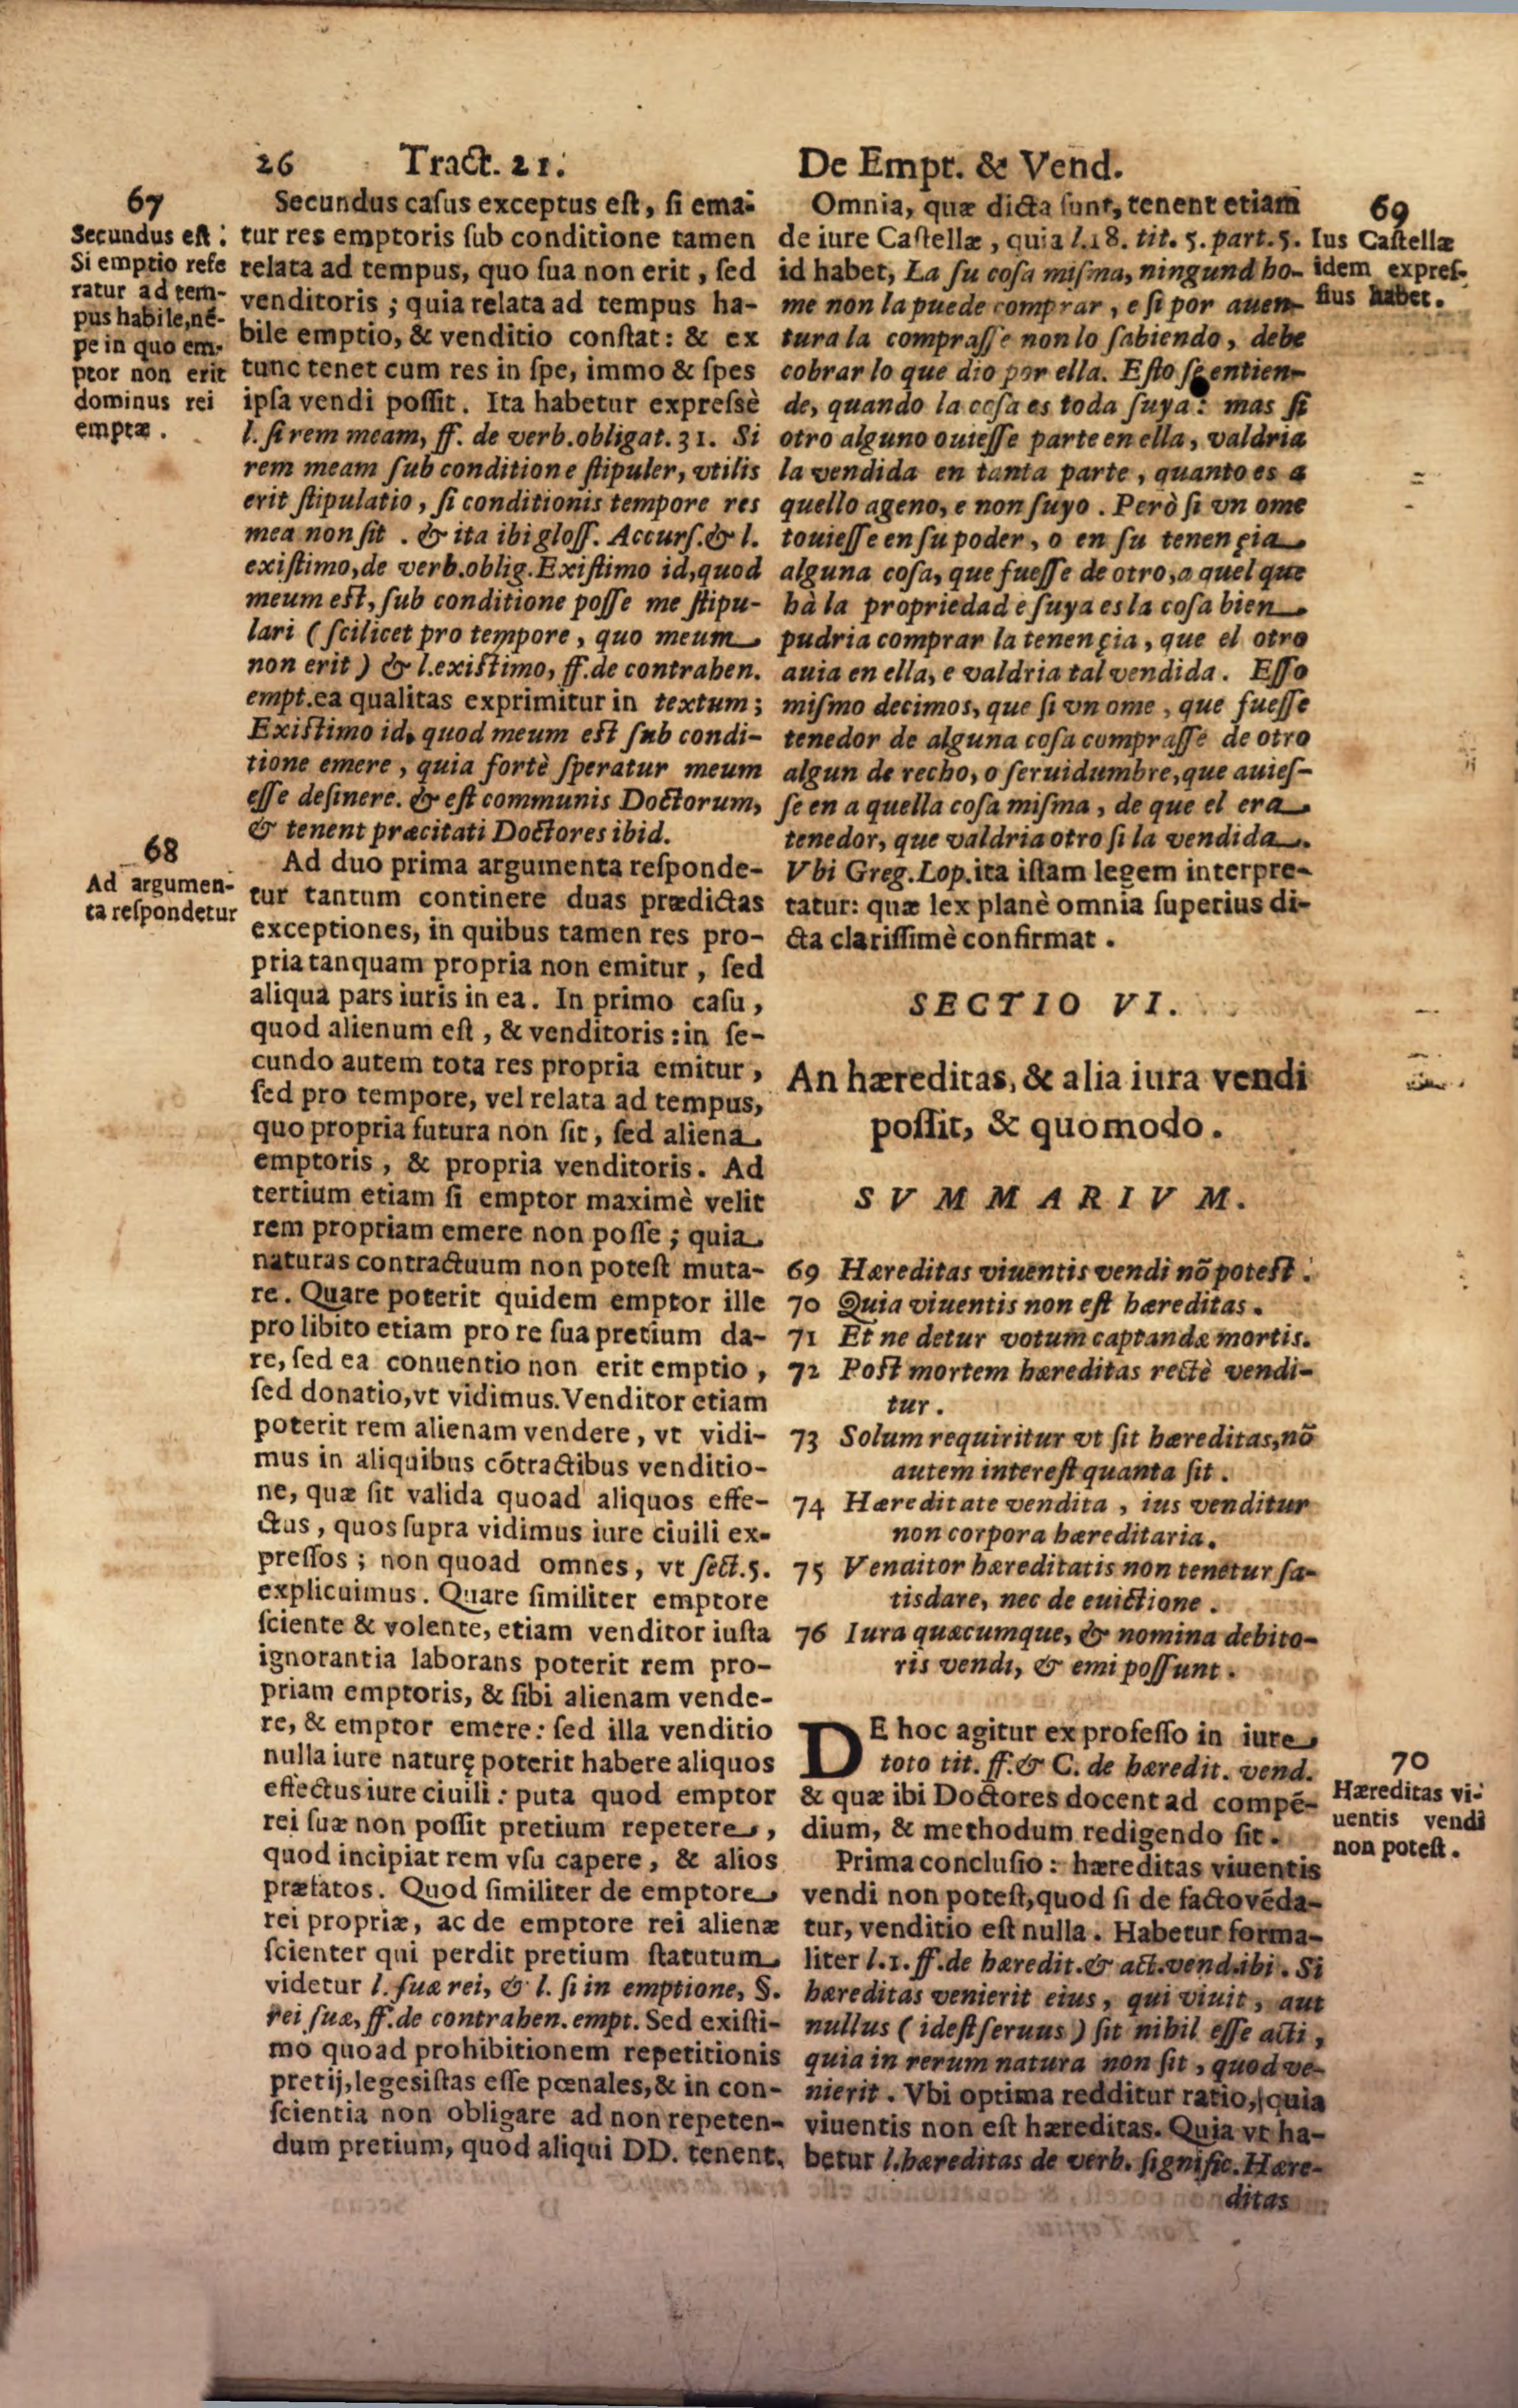 26 Tract. 21. De Empt. & Vend.
67
Secundus est:
Si emptio refe
ratur ad tem-
pus habile,nẽ-
pe in quo em-
ptor non erit
dominus rei
emptæ.
Secundus casus exceptus est, si ema-
tur res emptoris sub conditione tamen
relata ad tempus, quo sua non erit, sed
venditoris; quia relata ad tempus ha-
bile emptio, & venditio constat: & ex
tunc tenet cum res in spe, immo & spes
ipsa vendi possit. Ita habetur expressè
l. si rem meam, ff. de verb.obligat.31. Si
rem meam sub conditione stipuler, vtilis
erit stipulatio, si conditionis tempore res
mea non sit. & ita ibi gloss. Accurs.& l.
existimo,de verb.oblig.Existimo id,quod
meum est, sub conditione posse me stipu-
lari (scilicet pro tempore, quo meum
non erit) & l.existimo, ff.de contrahen.
empt.ea qualitas exprimitur in textum;
Existimo id, quod meum est sub condi-
tione emere, quia fortè speratur meum
esse desinere. & est communis Doctorum,
& tenent præcitati Doctores ibid.
68
Ad argumen-
ta respondetur
Ad duo prima argumenta responde-
tur tantum continere duas prædictas
exceptiones, in quibus tamen res pro-
pria tanquam propria non emitur, sed
aliqua pars iuris in ea. In primo casu,
quod alienum est, & venditoris: in se-
cundo autem tota res propria emitur,
sed pro tempore, vel relata ad tempus,
quo propria futura non sit, sed aliena
emptoris, & propria venditoris. Ad
tertium etiam si emptor maximè velit
rem propriam emere non posse; quia
naturas contractuum non potest muta-
re. Quare poterit quidem emptor ille
pro libito etiam pro re sua pretium da-
re, sed ea conuentio non erit emptio,
sed donatio,vt vidimus.Venditor etiam
poterit rem alienam vendere, vt vidi-
mus in aliquibus cõtractibus venditio-
ne, quæ sit valida quoad aliquos effe-
ctus, quos supra vidimus iure ciuili ex-
pressos; non quoad omnes, vt sect.5.
explicuimus. Quare similiter emptore
sciente & volente, etiam venditor iusta
ignorantia laborans poterit rem pro-
priam emptoris, & sibi alienam vende-
re, & emptor emere: sed illa venditio
nulla iure naturę poterit habere aliquos
effectus iure ciuili: puta quod emptor
rei suæ non possit pretium repetere,
quod incipiat rem vsu capere, & alios
præfatos. Quod similiter de emptore
rei propriæ, ac de emptore rei alienæ
scienter qui perdit pretium statutum
videtur l. suæ rei, & l. si in emptione, §.
rei suæ, ff.de contrahen.empt. Sed existi-
mo quoad prohibitionem repetitionis
pretij,leges istas esse pœnales,& in con-
scientia non obligare ad non repeten-
dum pretium, quod aliqui DD. tenent.
Omnia, quæ dicta sunt, tenent etiam
de iure Castellæ, quia l.18. tit. 5. part.5.
id habet, La su cosa misma, ningund ho-
me non la puede comprar, e si por auen-
tura la comprasse non lo sabiendo, debe
cobrar lo que dio por ella. Esto se entien-
de, quando la cosa es toda suya: mas si
otro alguno ouiesse parte en ella, valdria
la vendida en tanta parte, quanto es a
quello ageno, e non suyo. Però si vn ome
touiesse en su poder, o en su tenençia
alguna cosa, que fuesse de otro,a quel que
hà la propriedad e suya es la cosa bien
pudria comprar la tenençia, que el otro
auia en ella, e valdria tal vendida. Esso
mismo decimos, que si vn ome, que fuesse
tenedor de alguna cosa comprasse de otro
algun de recho, o seruidumbre,que auies-
se en a quella cosa misma, de que el era
tenedor, que valdria otro si la vendida.
Vbi Greg.Lop.ita istam legem interpre-
tatur: quæ lex planè omnia superius di-
cta clarissimè confirmat.
69
Ius Castellæ
idem expres-
sius habet.
SECTIO VI.
An hæreditas, & alia iura vendi
possit, & quomodo.
SVMMARIVM.
69 Hæreditas viuentis vendi nõ potest.
70 Quia viuentis non est hæreditas.
71 Et ne detur votum captandæ mortis.
72 Post mortem hæreditas rectè vendi-
tur.
73 Solum requiritur vt sit hæreditas,nõ
autem interest quanta sit.
74 Hæreditate vendita, ius venditur
non corpora hæreditaria.
75 Venditor hæreditatis non tenetur sa-
tisdare, nec de euictione.
76 Iura quæcumque, & nomina debito-
ris vendi, & emi possunt.
DE hoc agitur ex professo in iure
toto tit. ff.& C. de hæredit. vend.
& quæ ibi Doctores docent ad compẽ-
dium, & methodum redigendo sit.
Prima conclusio: hæreditas viuentis
vendi non potest,quod si de facto vẽda-
tur, venditio est nulla. Habetur forma-
liter l.1.ff.de hæredit.& act.vend.ibi. Si
hæreditas venierit eius, qui viuit, aut
nullus (idest seruus) sit nihil esse acti,
quia in rerum natura non sit, quod ve-
nierit. Vbi optima redditur ratio, quia
viuentis non est hæreditas. Quia vt ha-
betur l.hæreditas de verb. signific.Hære-
ditas
70
Hæreditas vi-
uentis vendi
non potest.